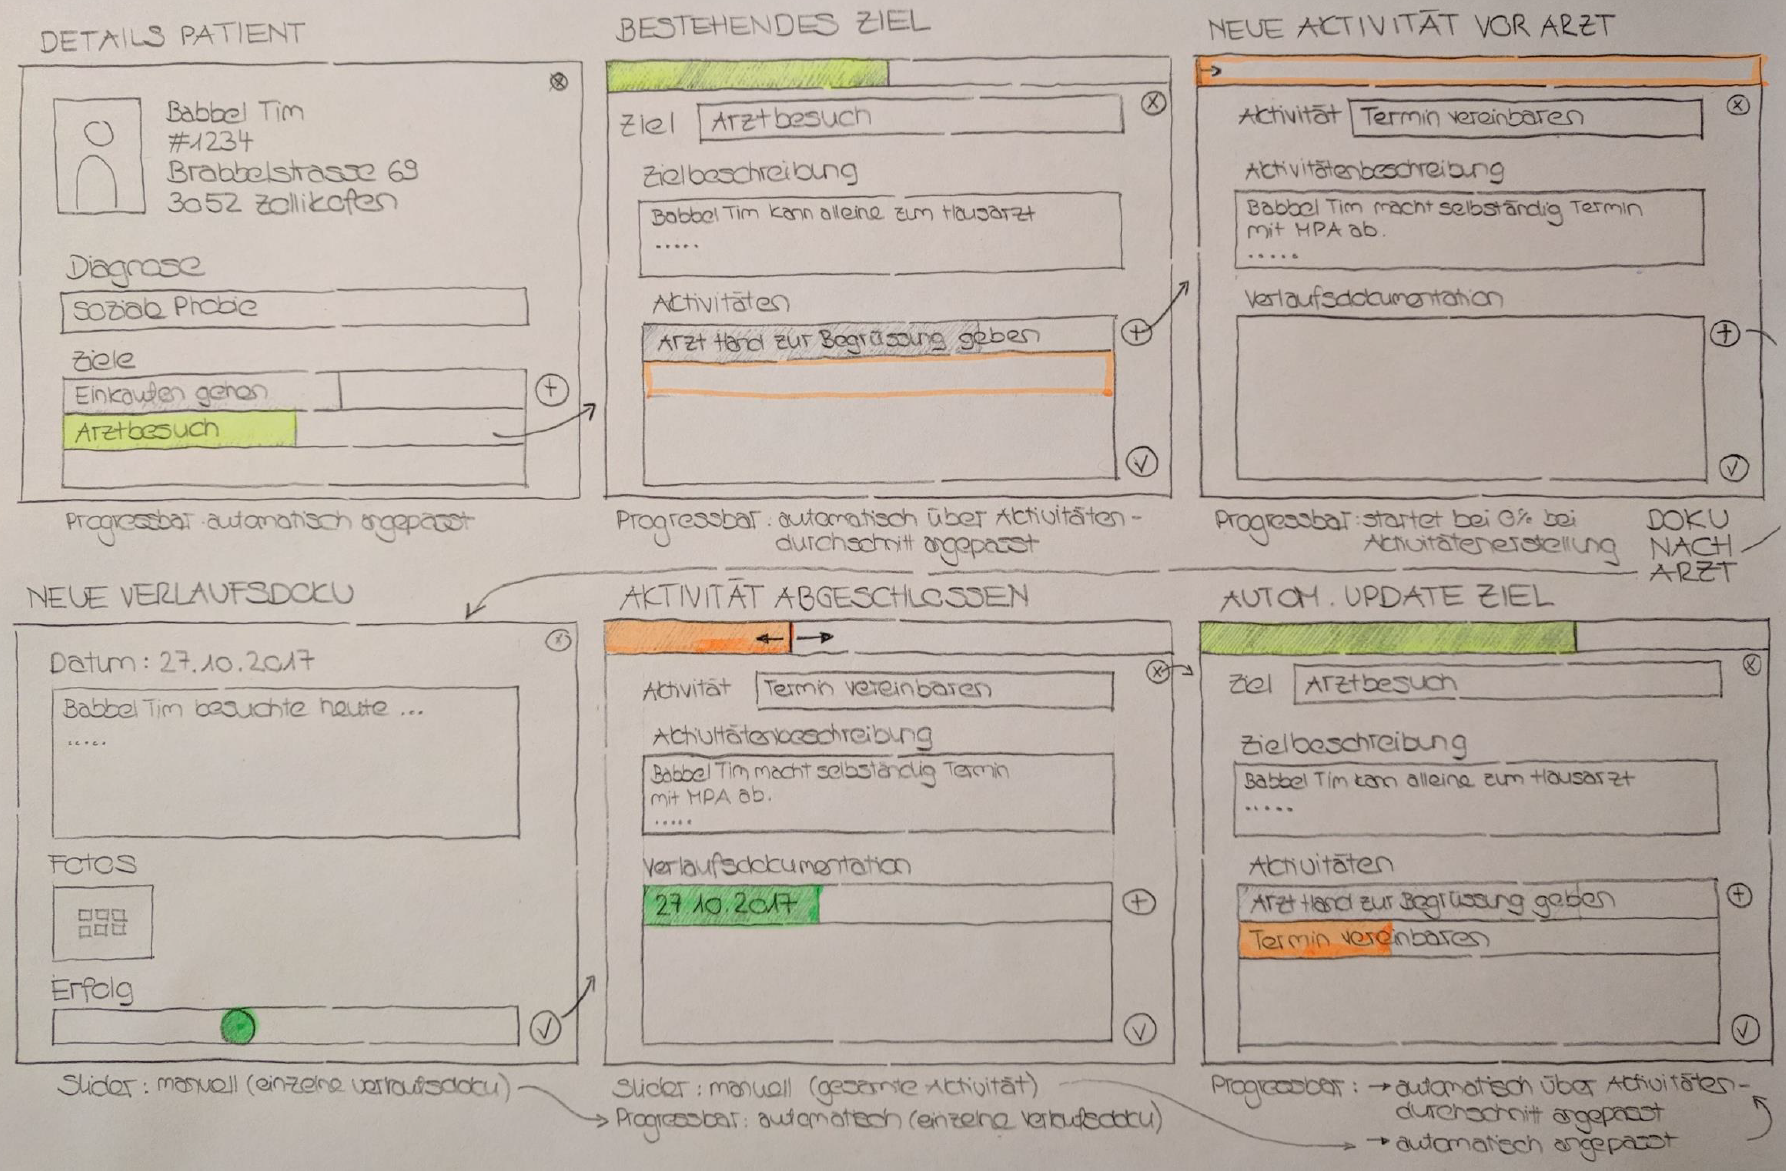 DETAILS PATIENT
Babbel Tim
#1234
Brabbelstrasse 69
3052 Zollikofen
Diagnose
Soziale Phobie
Ziele
Einkaufen gehen
Arztbesuch
Progressbar automatisch angepasst
BESTEHENDES ZIEL
Ziel Arztbesuch
Zielbeschreibung
Babbel Tim kann alleine zum Hausarzt
.....
Aktivitäten
Arzt Hand zur Begrüssung geben
Progressbar: automatisch über Aktivitäten-
durchschnitt angepasst
NEUE AKTIVITÄT VOR ARZT
Aktivität Termin vereinbaren
Aktivitätenbeschreibung
Babbel Tim macht selbständig Termin
mit MPA ab.
.....
Verlaufsdokumentation
Progressbar: startet bei 0% bei
Aktivitätenerstellung
DOKU
NACH
ARZT
NEUE VERLAUFSDOKU
Datum: 27.10.2017
Babbel Tim besuchte heute ...
.....
Fotos
Erfolg
Slider: manuell (einzelne Verlaufsdoku)
AKTIVITÄT ABGESCHLOSSEN
Aktivität Termin vereinbaren
Aktivitätenbeschreibung
Babbel Tim macht selbständig Termin
mit MPA ab.
.....
Verlaufsdokumentation
27.10.2017
Slider: manuell (gesamte Aktivität)
Progressbar: automatisch (einzelne Verlaufsdoku)
AUTOM. UPDATE ZIEL
Ziel Arztbesuch
Zielbeschreibung
Babbel Tim kann alleine zum Hausarzt
.....
Aktivitäten
Arzt Hand zur Begrüssung geben
Termin vereinbaren
Progressbar: → automatisch über Aktivitäten-
durchschnitt angepasst
→ automatisch angepasst